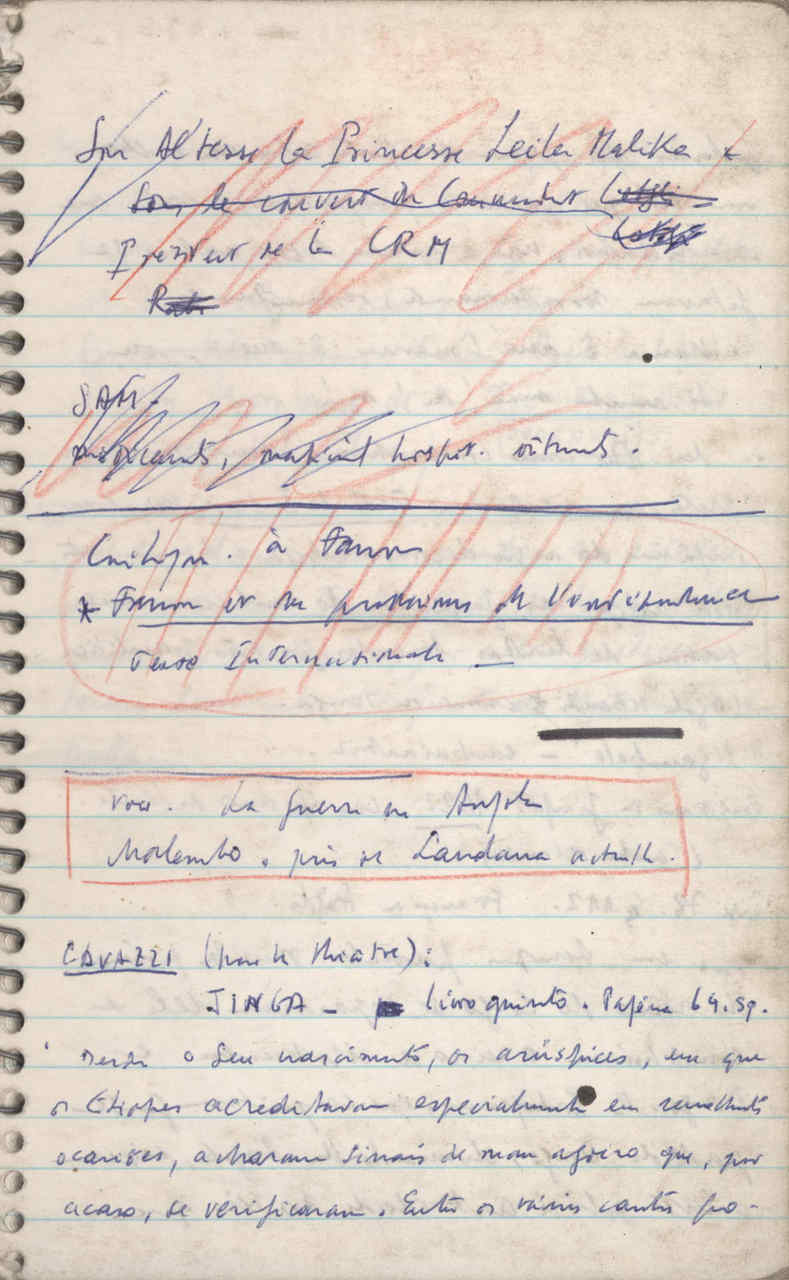 Son Altesse la Princesse Leila Malika
Sous le couvert du Commandant
President de la CRM
SAM.
médicaments, matériel hospit. vêtements.
à Fanon
* Fanon et les problèmes de l'Indépendance
Texto Internationale —
La guerre en Angola
Molembo, près de Landana actuelle.
CAVAZZI (pour le théâtre):
JINGA — livro quinto. Página 64. sg.
" Desde o seu nascimento, os arúspices, em que
os Etíopes acreditavam especialmente em semelhantes
ocasiões, acharam sinais de mau agoiro que, por
acaso, se verificaram. Entre os vários cantos fio-